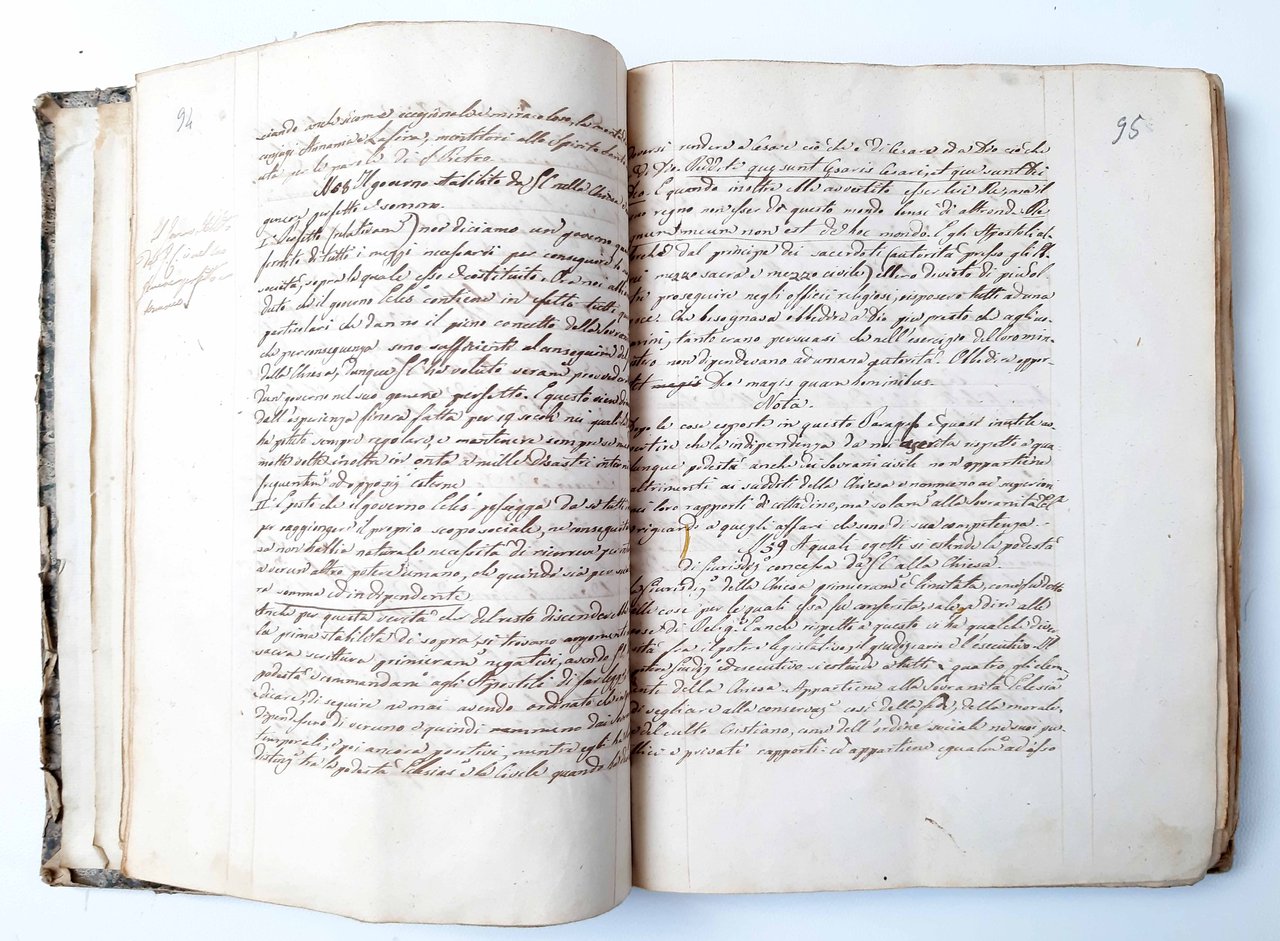 94
ciando anche siccome eccezionale e miracoloso, la morte
conjugi Anania e Zafira, mentitori allo Spirito Santo
per le parole di S. Pietro.
N 38 Il governo stabilito da G.C. nella Chiesa è
genere perfetto e sommo.
I° Perfetto (relativam) noi diciamo un governo qua
fornito di tutti i mezzi necessarii per conseguire lo
società, sopra la quale esso è costituito. Ora noi abb
duto che il governo Eccles. contiene in effetto tutte qu
particolari che danno il pieno concetto della Sovran
che per conseguenza sono sufficienti al conseguim del
della Chiesa, Dunque G.C. ha voluto veram provved
d'un governo nel suo genere perfetto. E questo vien
dall'esperienza finora fatta per 19 secoli nei quali
ha potuto sempre regolare, e mantenere sempre
molte volte inoltre in onta a mille disastri intern
frequentim ad opposiz. esterne
II° Posto che il governo Eccles. possegga da se tutti
per raggiungere il proprio scopo sociale, ne consegue
sa non habbia naturale necessità di ricorrere
a verun altro potere umano, che quindi sia per
ra somma ed indipendente.
Anche per questa verità che del resto discende
la prima stabilita di sopra, si trovano argomenti
sacra scrittura primieram negativi, avendo G.C.
podestà e commandam agli Apostoli di far leggi
dicare, di seguire ne mai avendo ordinato che in
dipendessero di veruno e quindi nemmeno dai
temporali, e poi ancora positivi, mentre egli ha
distinz. fra la podestà Ecclesias e la Civile quando ha
95
doversi rendere a Cesare ciò che è di Cesare, da Dio ciò che
è di Dio. Reddite quae sunt Cesaris Cesari, et quae sunt Dei
Deo. E quando inoltre Elli avvertiti esser lui Re, ma il
suo regno non esser di questo mondo bensì di altronde. Re
gnum meum non est de hoc mondo. Egli Apostoli al
lorchè dal principe dei sacerdoti (autorità presso gli Eb
rei mezzo sacra e mezzo civile) ebbero divieto di più ol
tre proseguire negli officii religiosi, risposero tutti ad una
voce: Che bisognava obbedire a Dio piu presto che agli uo
mini, tanto erano persuasi che nell'esercizio del loro min
istero non dipendevano ad umana autorità. Obbedire oppor
tet magis Deo magis quam hominibus.
Nota.
Dopo le cose esposte in questo Paragrfo è quasi inutile av
vertire che la indipendenza da noi asserita rispetto a qua
lunque podestà anche dei Sovrani civile non appartiene
altrimenti ai sudditi della Chiesa e nommano ai superiori
nei loro rapporti di cittadino, ma solam alla Sovranità Eccl
e riguard a quegli affari che sono di sua competenza.
N 39 A quali ogetti si estende la podestà
di Giurisdiz. concessa da G.C. alla Chiesa.
La Giurisdiz. della Chiesa primieram è limitata, come fu detto
alle cose per le quali essa fu conferita, vale a dire alle
cose di Relig. E anche rispetto a questo vi ha qualche div
ersità fra il potere legislativo, il giudiziario e l'esecutivo. Il
potere Giudiz. ed esecutivo si estende a tutti e quatro gli elem
enti della Chiesa. Appartiene alla Sovranità Eclesia
di vegliare alla conservaz. così della fede, della morale,
e del culto Cristiano, come dell'ordine sociale nei suoi pu
blici e privati rapporti: ed appartiene egualm ad essa